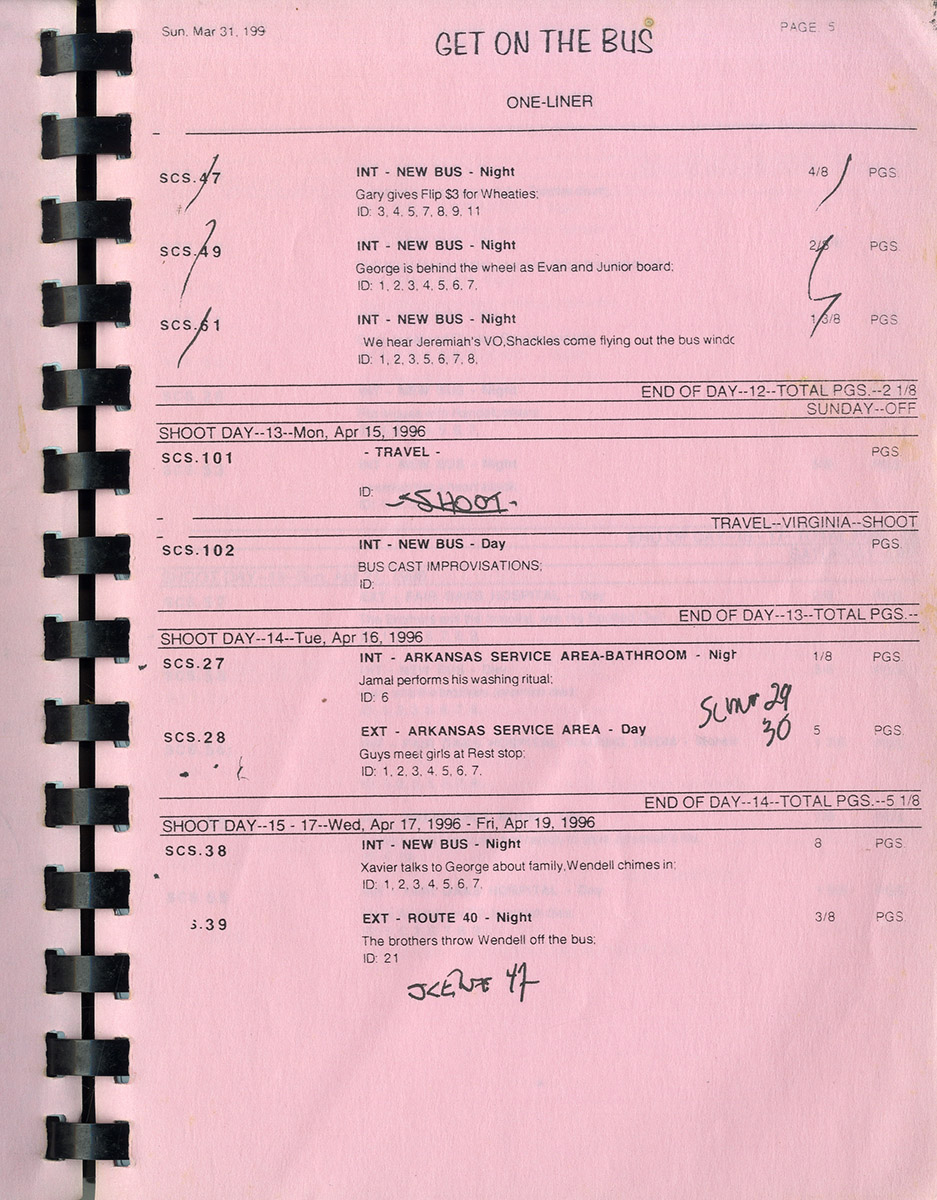 Sun, Mar 31, 199
GET ON THE BUS
PAGE 5
ONE-LINER
SCS.47 INT - NEW BUS - Night 4/8 PGS.
Gary gives Flip $3 for Wheaties;
ID: 3, 4, 5, 7, 8, 9, 11
SCS.49 INT - NEW BUS - Night 2/8 PGS.
George is behind the wheel as Evan and Junior board;
ID: 1, 2, 3, 4, 5, 6, 7,
SCS.61 INT - NEW BUS - Night 1 3/8 PGS.
We hear Jeremiah's VO,Shackles come flying out the bus windc
ID: 1, 2, 3, 5, 6, 7, 8,
END OF DAY--12--TOTAL PGS.--2 1/8
SUNDAY--OFF
SHOOT DAY--13--Mon, Apr 15, 1996
SCS.101 - TRAVEL - PGS.
ID:
-SHOOT-
TRAVEL--VIRGINIA--SHOOT
SCS.102 INT - NEW BUS - Day PGS.
BUS CAST IMPROVISATIONS;
ID:
END OF DAY--13--TOTAL PGS.--
SHOOT DAY--14--Tue, Apr 16, 1996
SCS.27 INT - ARKANSAS SERVICE AREA-BATHROOM - Nigh 1/8 PGS.
Jamal performs his washing ritual;
ID: 6
29
30
SCS.28 EXT - ARKANSAS SERVICE AREA - Day 5 PGS.
Guys meet girls at Rest stop;
ID: 1, 2, 3, 4, 5, 6, 7,
END OF DAY--14--TOTAL PGS.--5 1/8
SHOOT DAY--15 - 17--Wed, Apr 17, 1996 - Fri, Apr 19, 1996
SCS.38 INT - NEW BUS - Night 8 PGS.
Xavier talks to George about family,Wendell chimes in;
ID: 1, 2, 3, 4, 5, 6, 7,
S.39 EXT - ROUTE 40 - Night 3/8 PGS.
The brothers throw Wendell off the bus;
ID: 21
SCENE 47